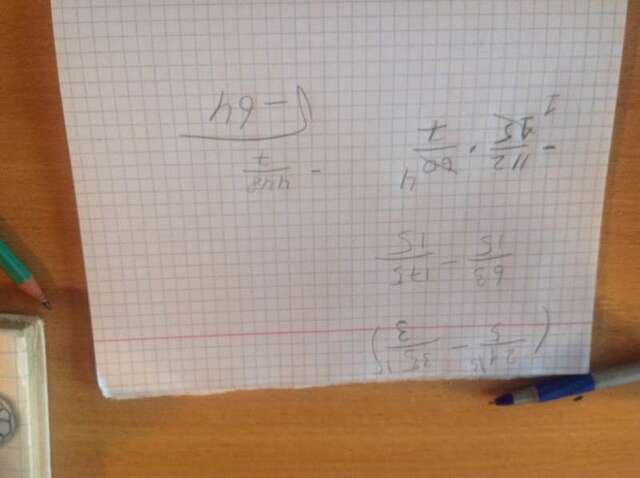 (21/5 - 35/3)
63/15 - 175/15
- 112/15 · 60/7 4 1
- 448/7
-64